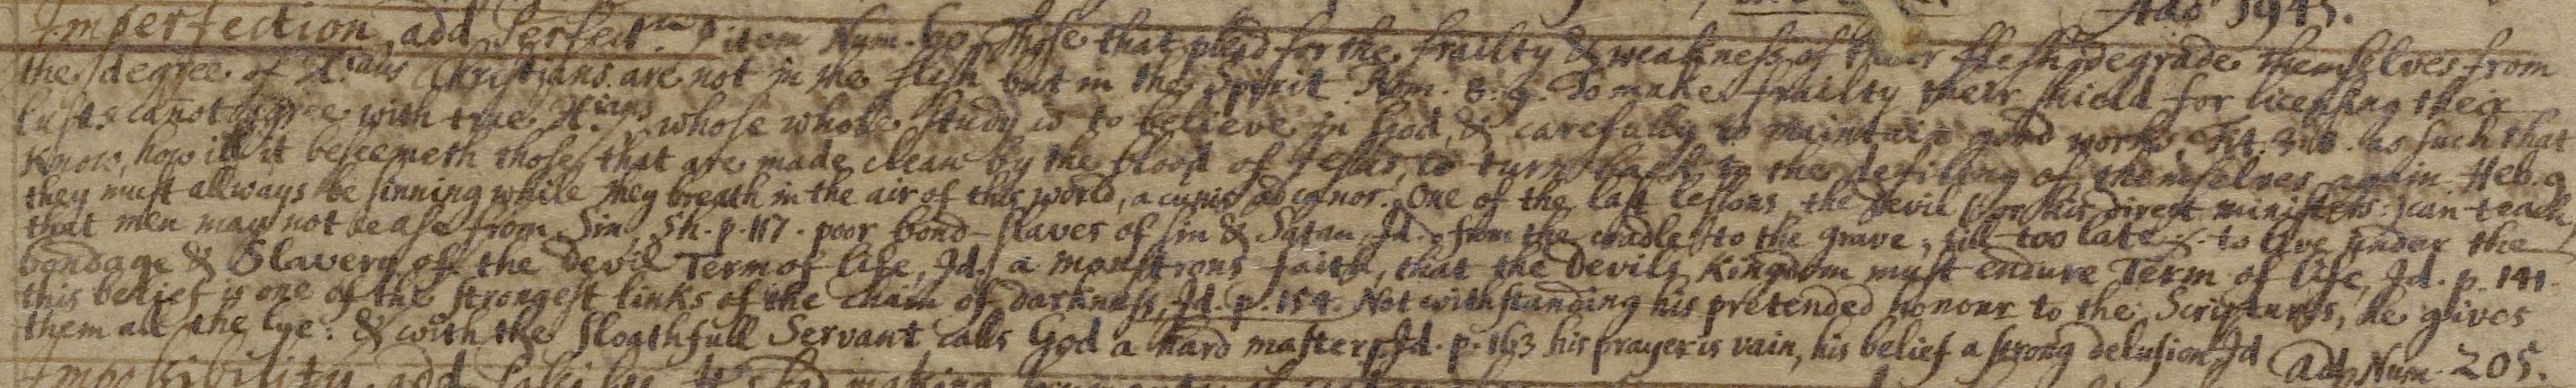 Add 1945.
Imperfection, add Perfect:n item Num. 60 Those that plead for the frailty & weakness of their flesh, degrade themselves from
the degree of X:ians Christians are not in the flesh but in the Spirit Rom. 8: 9. To make frailty their shield for licensing their
lusts canot agree with true X:ians whose whole study is to believe in God, & carefully to maintain good works, Tit. 3: 8. as such that
know, how ill it beseemeth those that are made clean by the blood of Jesus, to turn back to the defiling of themselves again. Heb. 9
they must allways be sinning while they breath in the air of this world, a cunis ad canos. One of the last lessons the devil (or his direst ministers) can teach
that men may not cease from Sin, Sh. p. 117. poor bond-slaves of sin & Satan Id. from the cradle to the grave, till too late to live under the
bondage & Slavery of the devil Term of life, Id. a monstrous faith, that the devils Kingdom must endure Term of life, Id. p. 141.
this belief is one of the strongest links of the chain of darkness, Id. p. 154. Notwithstanding his pretended honour to the Scriptures, he gives
them all the lye: & with the sloathfull Servant calls God a hard master, Id. p. 163 his prayer is vain, his belief a strong delusion Id add Num. 205.
Impossibility, add making